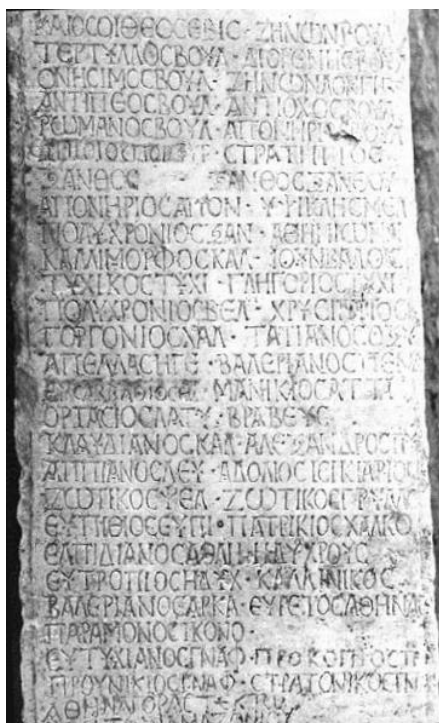 ΚΑΙΟϹΟΙΘΕΟϹΕΒΙϹ · ΖΗΝѠΝΒΟΥΛ
ΤΕΡΤΥΛΛΟϹΒΟΥΛ · ΔΙΟΓΕΝΗϹΒΟΥ
ΟΝΗϹΙΜΟϹΒΟΥΛ · ΖΗΝѠΝΛΟΝΓΙ
ΑΝΤΙΠΕΟϹΒΟΥΛ · ΑΝΤΙΟΧΟϹΒΟΥΛ
ΡѠΜΑΝΟϹΒΟΥΛ · ΑΠΟΝΗΡΙΟϹΒΟΥΛ
ϹΤΡΑΤΗΓΙΟϹ
ΞΑΝΘΟϹ · ΞΑΝΘΟϹΞΑΝΘΟΥ
ΑΠΟΝΗΡΙΟϹΑΠΟΝ · ΥΨΙΚΛΗϹΜΕΛ
ΠΟΛΥΧΡΟΝΙΟϹΞΑΝ · ΑΘΗΝΙѠΝ
ΚΑΛΛΙΜΟΡΦΟϹΚΑΛ · ΙΟΥΝΒΑΛΟϹ
ΤΥΧΙΚΟϹΤΥΧΙ · ΓΛΗΓΟΡΙΟϹΤΥΧΙ
ΠΟΛΥΧΡΟΝΙΟϹΒΕΛ · ΧΡΥϹΙΠΠΟϹ
ΓΟΡΓΟΝΙΟϹΧΑΛ · ΤΑΤΙΑΝΟϹΟΞΥ
ΑΠΕΛΛΑϹΗΓΕ · ΒΑΛΕΡΙΑΝΟϹΠΕΝ
ΕΥϹΑΒΒΑΘΙΟϹ ΜΑΝΙΚΙΟϹΑΤΤΑ
ΟΡΤΑϹΙΟϹΛΑΤΥ · ΒΡΑΒΕΥϹ
ΚΛΑΥΔΙΑΝΟϹΚΑΛ · ΑΛΕΞΑΝΔΡΟϹΠΥ
ΑΠΠΙΑΝΟϹΛΕΥ · ΑΔΟΛΙΟϹΙϹΙΚΙΑΡΙΟϹ
ΖѠΤΙΚΟϹΨΕΛ · ΖѠΤΙΚΟϹΓΡΥΛΛΟϹ
ΕΥΠΙΘΙΟϹΕΥΠΙ · ΠΑΤΡΙΚΙΟϹΧΑΛΚΟ
ΕΛΠΙΔΙΑΝΟϹΑΘΛΗ · ΗΔΥΧΡΟΥϹ
ΕΥΤΡΟΠΙΟϹΗΔΥΧ · ΚΑΛΛΙΝΙΚΟϹ
ΒΑΛΕΡΙΑΝΟϹΑΡΚΑ · ΕΥΡΕΤΟϹΑΘΗΝΑΓ
ΠΑΡΑΜΟΝΟϹΙΚΟΝΟ ·
ΕΥΤΥΧΙΑΝΟϹΓΝΑΦ · ΠΡΟΚΟΠΙΟϹΤΡ
ΠΡΟΥΝΙΚΙΟϹΓΝΑΦ · ϹΤΡΑΤΟΝΙΚΟϹΓΝ
ΑΘΗΝΑΓΟΡΑϹ